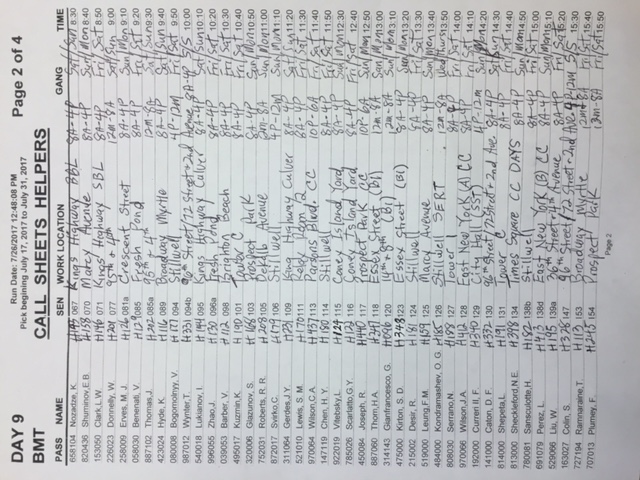 DAY 9 Run Date: 7/26/2017 12:48:08 PM Page 2 of 4
Pick beginning July 17, 2017 to July 31, 2017
BMT CALL SHEETS HELPERS
PASS NAME SEN WORK LOCATION GANG TIME
658104 Nozadze, K. 067 Kings Highway BBL 8A-4P Sat/Sun 8:30
820436 Shuminov, E.B. H158 070 Marcy Avenue 8A-4P Sun/Mon 8:40
153053 Clark, L.W. H146 071 Kings Highway SBL 8A-4P Fri/Sat 8:50
226023 Donnelly, W. 077 12M-8A Sat/Sun 9:00
258009 Erves, M.J. H126 081a Crescent Street 8A-4P Sun/Mon 9:10
058030 Benenati, V. 083 Fresh Pond 8A-4P Fri/Sat 9:20
887102 Thomas, J. H202 085a 95th - 4th 12M-8A Sat/Sun 9:30
423024 Hyde, K. H116 089 Broadway Myrtle 8A-4P Sun/Mon 9:40
080008 Bogomolnyy, V. H177 094 Stillwell 4P-12M Fri/Sat 9:50
987012 Wynter, T. H331 094b 96th Street/72 Street + 2nd Avenue 8A-4P S/S 10:00
540018 Lukianov, I. H144 095 Kings Highway Culver 8A-4P Sat/Sun 10:10
996055 Zhao, J. H130 096a Fresh Pond 8A-4P Fri/Sat 10:20
039031 Barber, V. H112 098 Brighton Beach 8A-4P 10:30
495017 Kuzmin, K. H190 101 Tower C 8A-4P Fri/Sat 10:40
320006 Glazunov, S. H168 103 Prospect Park 8A-4P Sun/Mon 10:50
752031 Roberts, R. R. H208 105 DeKalb Avenue 12M-8A Sun/Mon 11:00
872017 Svirko, C. 108 Stillwell 4P-12M Sun/Mon 11:10
311064 Gerdes, J.Y. H28 109 King Highway Culver 8A-4P Sat/Sun 11:20
521010 Lewis, S. M. H170 111 Relay Room 12 8A-4P Fri/Sat 11:30
970064 Wilson, C.A. H457 113 Parsons Blvd. CC 10P-6A Fri/Sat 11:40
147119 Chen, H. Y. H180 114 Stillwell 8A-4P Fri/Sat 11:50
922019 Vilensky, L. H224 115 Coney Island Yard 8A-4P Sat/Sun 12:30
785026 Scarlatto, G.Y. H172 116 Coney Island Yard 8A-4P 12:40
450084 Joseph, R. H440 117 Prospect Park CC 10P-6A Fri/Sat 12:50
887060 Thom, H.A. H241 118 Essex Street (BI) 12M-8A Fri/Sat 13:00
314143 Gianfrancesco, G. H016 120 14th + 8th (BI) 12M-8A Sun/Mon 13:10
475000 Kirton, S.D. H348 123 Essex Street (BI) 8A-4P Sun/Mon 13:20
215002 Desir, R. 124 Stillwell 8A-4P Sun/Mon 13:30
519000 Leung, F.M. H159 125 Marcy Avenue 8A-4P Fri/Sat 13:40
484000 Kondramashov, O.G. H185 126 Stillwell SFRT 8A-4P Wed/Thurs 13:50
808030 Serrano, N. H188 127 Tower 8A-4P Fri/Sat 14:00
970066 Wilson, J.A. H012 128 East New York (A) CC 8A-4P Fri/Sat 14:10
192000 Current II, F. H340 129 City Hall (SST) 4P-12M Sun/Mon 14:20
141000 Caton, D.F. H332 130 96th Street/72 Street + 2nd Ave. 8A-4P Sun/Mon 14:20
814000 Shepeta, L. H191 131 Tower C 8A-4P Fri/Sat 14:40
813000 Sheckleford, N.E. H298 134 Times Square CC DAYS 8A-4P Fri/Sat 14:50
780081 Sansoulotte, H. H182 138b Stillwell 8A-4P Sun/Mon 15:00
691079 Perez, L. H413 138d East New York (B) CC 8A-4P Sun/Mon 15:10
529066 Liu, W. H195 139a 36th Street + 4th Avenue 8A-4P Fri/Sat
163027 Colin, S. H326 147 96th Street/72 Street + 2nd Ave. S/S 15:30
727194 Rannaraine, T. H113 153 Broadway Myrtle 12M-8A Fri/Sat 15:40
707013 Plumey, F. H245 154 Prospect Park 12M-8A Fri/Sat 15:50
Page 2